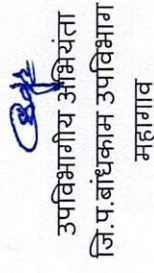 उपविभागीय अभियंता
जि.प.बांधकाम उपविभाग
महागाव